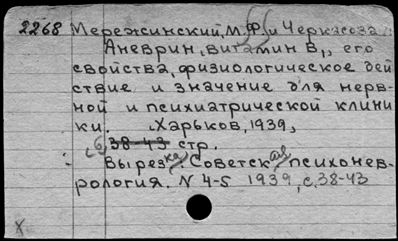 2268 Мережинский, М.Ф. и Черкасова.
Аневрин, витамин В1, его
свойства, физиологическое дей
ствие и значение для нерв-
ной и психиатрической клини
ки. Харьков, 1939,
6, 38-43 стр.
Вырезка, Советская психонев-
рология. N 4-5 1939, с. 38-43
x.